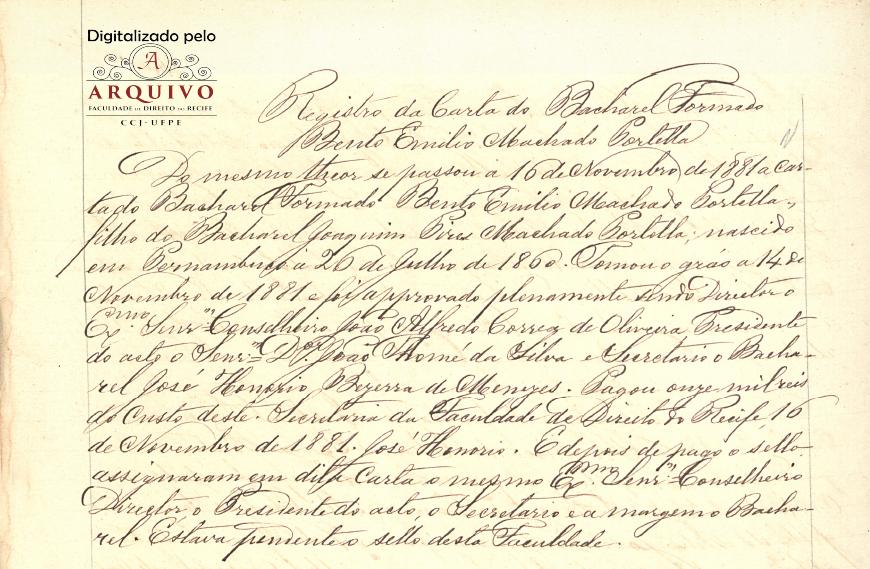 Digitalizado pelo
A
ARQUIVO
FACULDADE DE DIREITO DO RECIFE
CCJ-UFPE
Registro da Carta do Bacharel Formado
Bento Emilio Machado Portella
Do mesmo theor se passou a 16 de Novembro de 1881 a Car-
ta do Bacharel Formado Bento Emilio Machado Portella,
filho do Bacharel Joaquim Pires Machado Portella; nascido
em Pernambuco a 26 de Julho de 1860. Tomou o gráo a 14 de
Novembro de 1881 e foi approvado plenamente sendo Director o
Exmo. Senr. Conselheiro João Alfredo Correa de Oliveira, Presidente
do acto o Senr. Dr. João Thomé da Silva e Secretario o Bacha-
rel José Honorio Bezerra de Menezes. Pagou onze mil reis
do custo deste. Secretaria da Faculdade de Direito do Recife, 16
de Novembro de 1881. José Honorio. E depois de pago o sello
assignaram em dita Carta o mesmo Exmo. Senr. Conselheiro
Director o Presidente do acto, o Secretario e a margem o Bacha-
rel. Estava pendente o sello desta Faculdade.